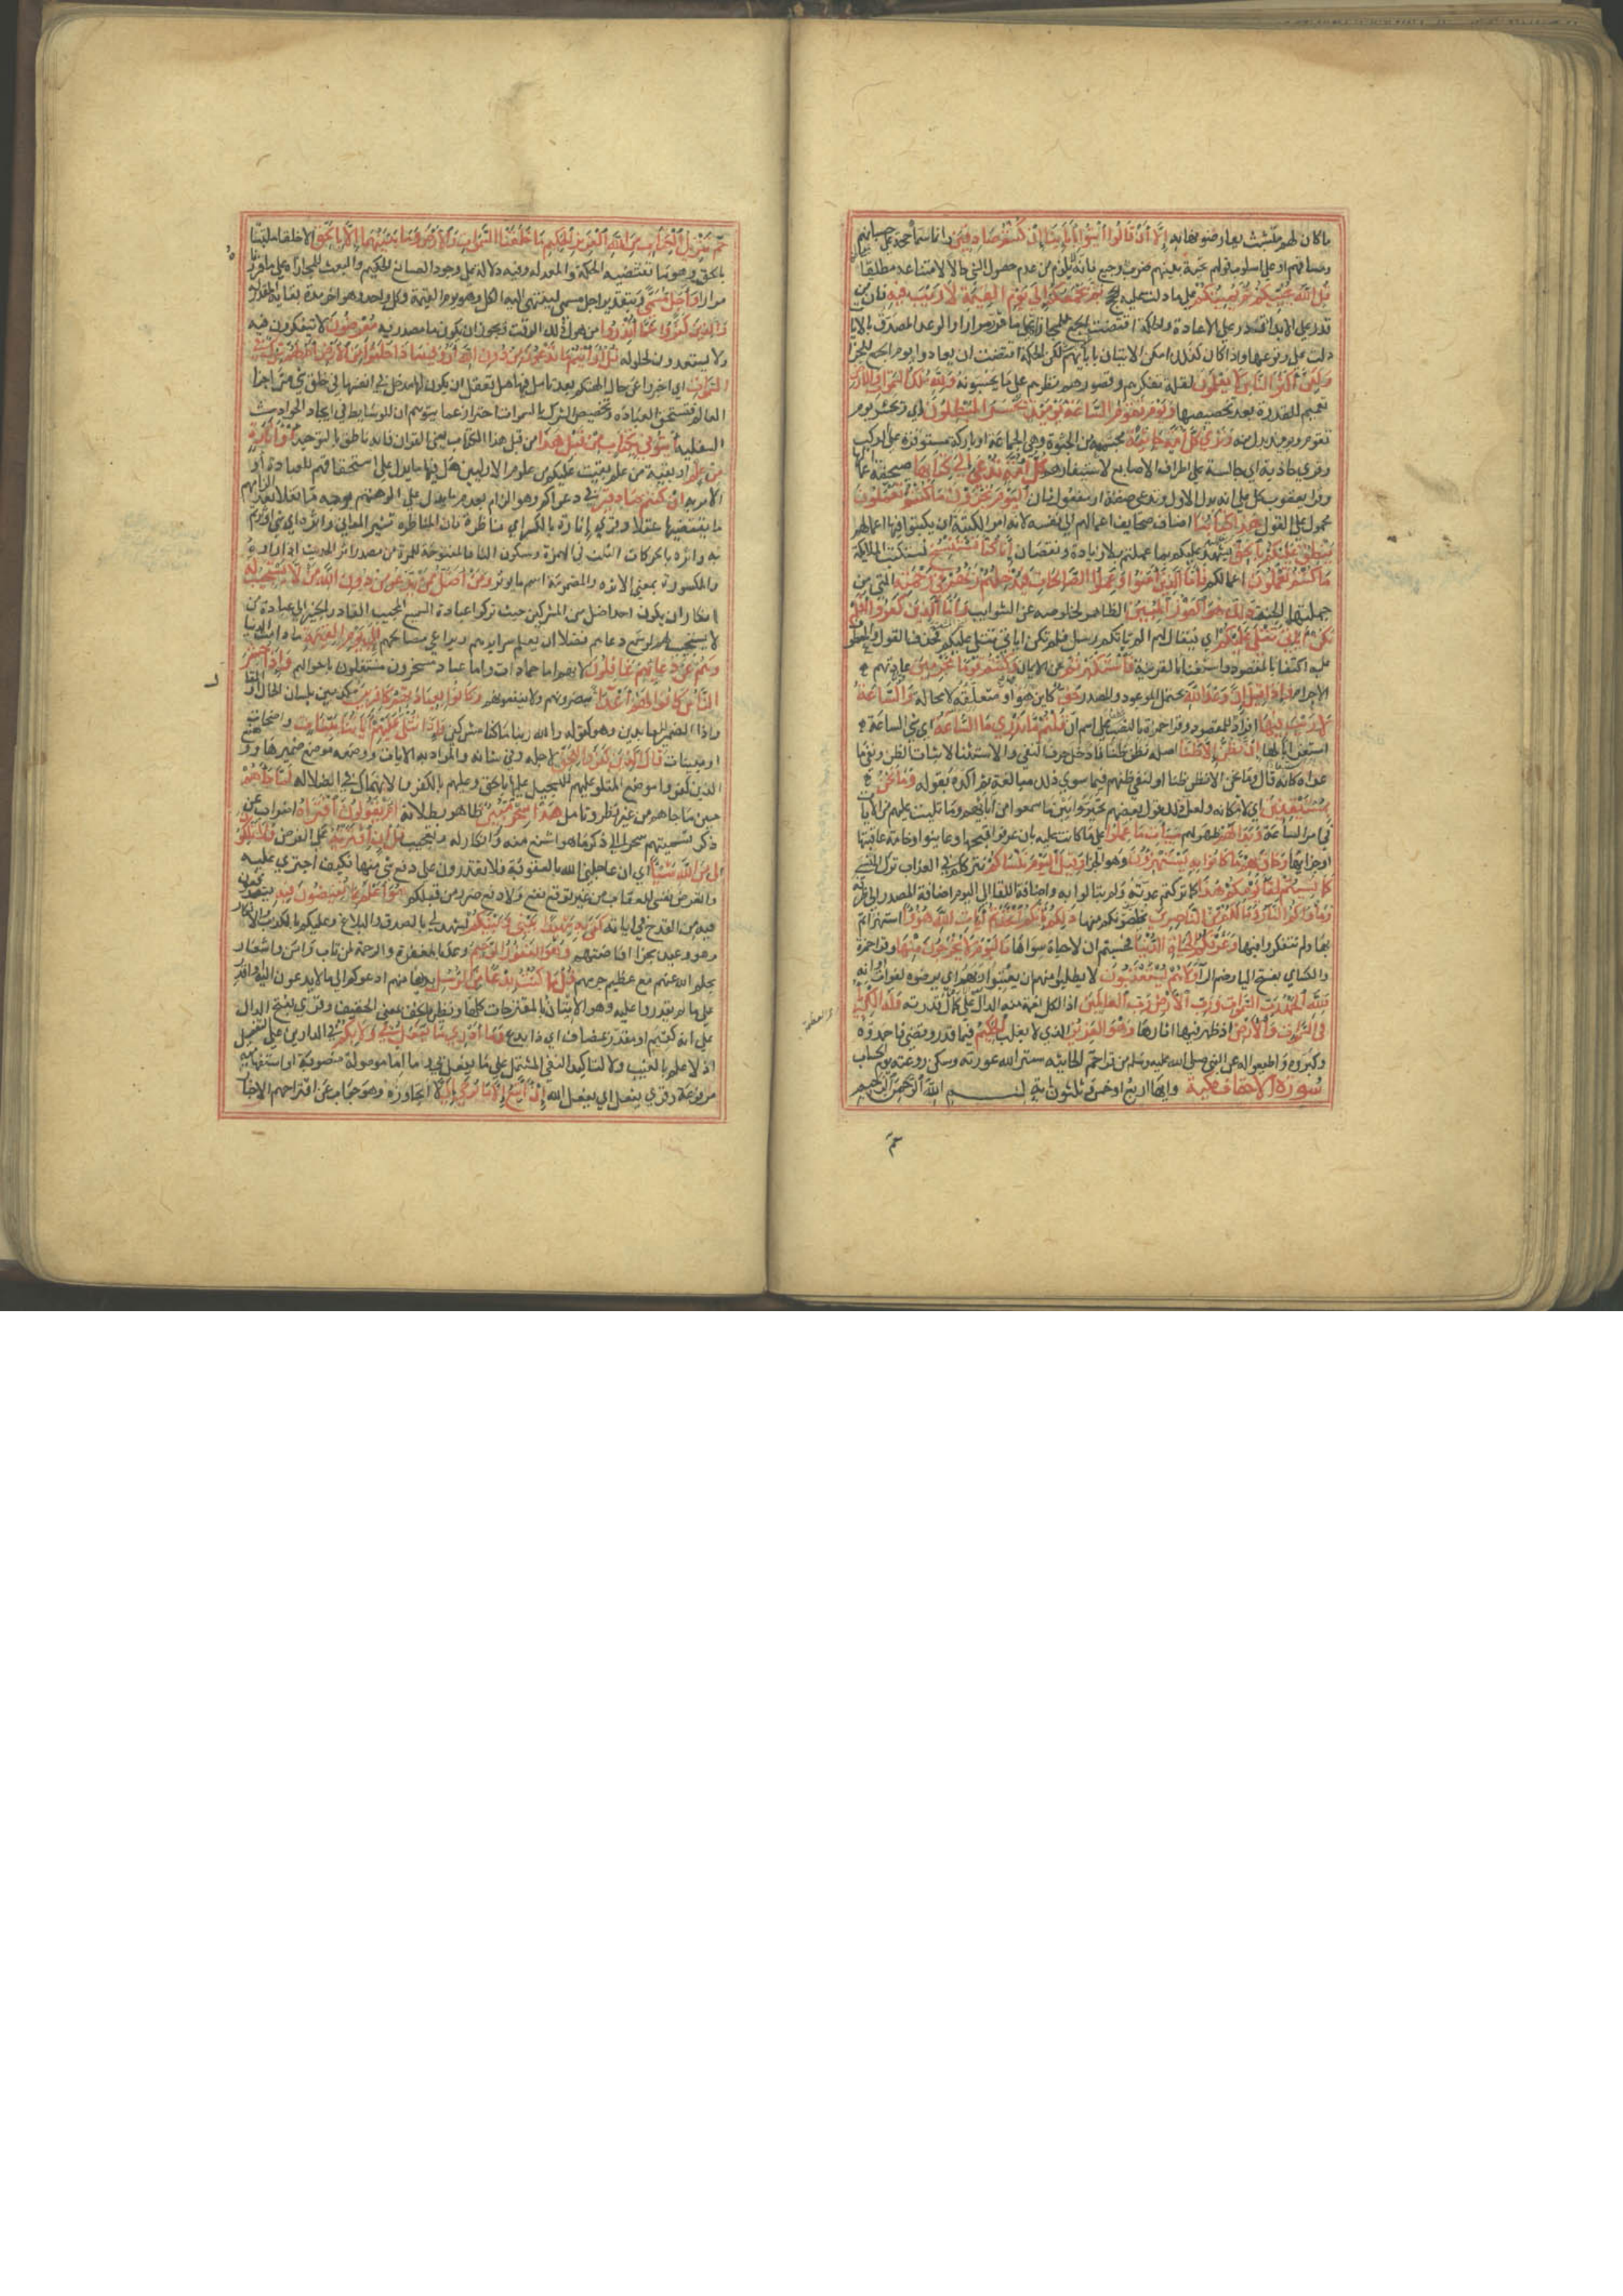 ما كان لهم متشبث يعارضونها به إِلَّا أَنْ قَالُوا ائْتُوا بِآبَائِنَا إِنْ كُنْتُمْ صَادِقِينَ وانما سماه حجة على حسبانهم
ومساقهم او على اسلوب قولهم تحية بينهم ضرب وجيع فانه لا يلزم من عدم حصول الشي حالا لامتناعه مطلقا
قُلِ اللَّهُ يُحْيِيكُمْ ثُمَّ يُمِيتُكُمْ على ما دلت عليه الحجج ثُمَّ يَجْمَعُكُمْ إِلَى يَوْمِ الْقِيَامَةِ لَا رَيْبَ فِيهِ فان من
قدر على الابداء قدر على الاعادة والحكمة اقتضت الجمع للمجازاة على ما قرر مرارا والوعد المصدق بالايات
دلت على وقوعها واذا كان كذلك امكن الاتيان بابائهم لكن الحكمة اقتضت ان يعادوا يوم الجمع للجزا
وَلَكِنَّ أَكْثَرَ النَّاسِ لَا يَعْلَمُونَ لقلة تفكرهم وقصور نظرهم على ما يحسونه وَلِلَّهِ مُلْكُ السَّمَوَاتِ وَالْأَرْضِ
تعميم للقدرة بعد تخصيصها وَيَوْمَ تَقُومُ السَّاعَةُ يَوْمَئِذٍ يَخْسَرُ الْمُبْطِلُونَ اي ويخسر يوم
تقوم ويومئذ بدل منه وَتَرَى كُلَّ أُمَّةٍ جَاثِيَةً مجتمعة من الجثوة وهي الجماعة او باركة مستوفزة على الركب
وقري جاذية اي جالسة على اطراف الاصابع لاستيفازهم كُلُّ أُمَّةٍ تُدْعَى إِلَى كِتَابِهَا صحيفة اعمالها
وقرا يعقوب كل على انه بدل الاول وتدعى صفة او مفعول ثان الْيَوْمَ تُجْزَوْنَ مَا كُنْتُمْ تَعْمَلُونَ
محمول على القول هَذَا كِتَابُنَا اضاف صحايف اعمالهم الى نفسه لانه امر الكتبة ان يكتبوا فيها اعمالهم
يَنْطِقُ عَلَيْكُمْ بِالْحَقِّ يشهد عليكم بما عملتم بلا زيادة ونقصان إِنَّا كُنَّا نَسْتَنْسِخُ نستكتب الملائكة
مَا كُنْتُمْ تَعْمَلُونَ اعمالكم فَأَمَّا الَّذِينَ آمَنُوا وَعَمِلُوا الصَّالِحَاتِ فَيُدْخِلُهُمْ رَبُّهُمْ فِي رَحْمَتِهِ التي من
جملتها الجنة ذَلِكَ هُوَ الْفَوْزُ الْمُبِينُ الظاهر لخلوصه عن الشوائب وَأَمَّا الَّذِينَ كَفَرُوا أَفَلَمْ
تَكُنْ آيَاتِي تُتْلَى عَلَيْكُمْ اي فيقال لهم الم ياتكم رسل فلم تكن اياتي تتلى عليكم فحذف القول والمعطوف
عليه اكتفا بالمقصود واستغنا بالقرينة فَاسْتَكْبَرْتُمْ عن الايمان وَكُنْتُمْ قَوْمًا مُجْرِمِينَ عادتهم
الاجرام وَإِذَا قِيلَ إِنَّ وَعْدَ اللَّهِ يحتمل الموعود والمصدر حَقٌّ كاين هو او متعلقه لا محالة وَالسَّاعَةُ
لَا رَيْبَ فِيهَا افراد للمقصود وقرا حمزة بالنصب عطفا على اسم ان قُلْتُمْ مَا نَدْرِي مَا السَّاعَةُ اي شي الساعة
استغرابا لها إِنْ نَظُنُّ إِلَّا ظَنًّا اصله نظن ظنا فادخل حرف النفي والاستثنا لاثبات الظن ونفي ما
عداه كانه قال وما نحن الا نظن ظنا او لنفي ظنهم فيما سوى ذلك مبالغة ثم اكده بقوله وَمَا نَحْنُ
بِمُسْتَيْقِنِينَ اي لامكانه ولعل ذلك قول بعضهم تحيروا بين ما سمعوا من ابائهم وما تليت عليهم من الايات
في امر الساعة وَبَدَا لَهُمْ ظهر لهم سَيِّئَاتُ مَا عَمِلُوا على ما كانت عليه بان عرفوا قبحها وعاينوا وخامة عاقبتها
او جزاؤها وَحَاقَ بِهِمْ مَا كَانُوا بِهِ يَسْتَهْزِئُونَ وهو الجزا وَقِيلَ الْيَوْمَ نَنْسَاكُمْ نترككم في العذاب ترك ما ينسى
كَمَا نَسِيتُمْ لِقَاءَ يَوْمِكُمْ هَذَا كما تركتم عدته ولم تبالوا به واضافة اللقا الى اليوم اضافة المصدر الى ظرفه
وَمَأْوَاكُمُ النَّارُ وَمَا لَكُمْ مِنْ نَاصِرِينَ يخلصونكم منها ذَلِكُمْ بِأَنَّكُمُ اتَّخَذْتُمْ آيَاتِ اللَّهِ هُزُوًا استهزاتم
بها ولم تتفكروا فيها وَغَرَّتْكُمُ الْحَيَاةُ الدُّنْيَا فحسبتم ان لا حياة سواها فَالْيَوْمَ لَا يُخْرَجُونَ مِنْهَا وقرا حمزة
والكساي بفتح اليا وضم الرا وَلَا هُمْ يُسْتَعْتَبُونَ لا يطلب منهم ان يعتبوا ربهم اي يرضوه لفوات اوانه
فَلِلَّهِ الْحَمْدُ رَبِّ السَّمَوَاتِ وَرَبِّ الْأَرْضِ رَبِّ الْعَالَمِينَ اذ الكل نعمة منه الدال على كمال قدرته وَلَهُ الْكِبْرِيَاءُ
والعظمة
فِي السَّمَوَاتِ وَالْأَرْضِ اذ ظهر فيها اثارها وَهُوَ الْعَزِيزُ الذي لا يغلب الْحَكِيمُ فيما قدر وقضى فاحمدوه
وكبروه واطيعوا له عن النبي صلى الله عليه وسلم من قرا حم الجاثيه ستر الله عورته وسكن روعته يوم الحساب
سورة الاحقاف مكية وايها اربع او خمس وثلثون اية بسم الله الرحمن الرحيم
حم
حم تَنْزِيلُ الْكِتَابِ مِنَ اللَّهِ الْعَزِيزِ الْحَكِيمِ مَا خَلَقْنَا السَّمَوَاتِ وَالْأَرْضَ وَمَا بَيْنَهُمَا إِلَّا بِالْحَقِّ الا خلقا ملتبسا
بالحق وهو ما تقتضيه الحكمة والمعدله وفيه دلالة على وجود الصانع الحكيم والبعث للمجازاة على ما قررناه
مرارا وَأَجَلٍ مُسَمًّى وبتقدير اجل مسمى ينتهي اليه الكل وهو يوم القيمة او كل واحد وهو اخر مدة بقايه المقدرة
وَالَّذِينَ كَفَرُوا عَمَّا أُنْذِرُوا من هول ذلك الوقت ويجوز ان يكون ما مصدرية مُعْرِضُونَ لا يتفكرون فيه
ولا يستعدون لحلوله قُلْ أَرَأَيْتُمْ مَا تَدْعُونَ مِنْ دُونِ اللَّهِ أَرُونِي مَاذَا خَلَقُوا مِنَ الْأَرْضِ أَمْ لَهُمْ شِرْكٌ فِي
السَّمَوَاتِ اي اخبروني عن حال الهتكم بعد تامل فيها هل يعقل ان يكون لها مدخل في انفسها في خلق شي من اجزا
العالم فتستحق العبادة وتخصيص الشرك بالسموات احتراز عما يتوهم ان للوسايط في ايجاد الحوادث
السفلية ائْتُونِي بِكِتَابٍ مِنْ قَبْلِ هَذَا من قبل هذا الكتاب يعني القران فانه ناطق بالتوحيد أَوْ أَثَارَةٍ
مِنْ عِلْمٍ او بقية من علم بقيت عليكم من علوم الاولين هل فيها ما يدل على استحقاقهم للعبادة او
الامر به إِنْ كُنْتُمْ صَادِقِينَ في دعواكم وهو الزام بعدم ما يدل على الوهيتهم بوجه ما نقلا بعد الزامهم
ما يقتضيها عقلا وقري اثارة بالكسر اي مناظرة فان المناظرة تثير المعاني واثرة اي شي اوثرتم
به واثرة بالحركات الثلث في الهمزة وسكون الثا فالمفتوحة للمرة من مصدر اثر الحديث اذا رواه
والمكسورة بمعنى الاثرة والمضمومة اسم ما يوثر وَمَنْ أَضَلُّ مِمَّنْ يَدْعُو مِنْ دُونِ اللَّهِ مَنْ لَا يَسْتَجِيبُ لَهُ
انكار ان يكون احد اضل من المشركين حيث تركوا عبادة السميع المجيب القادر الخبير الى عبادة من
لا يستجيب لهم لو سمع دعاهم فضلا ان يعلم سرايرهم ويراعي مصالحهم إِلَى يَوْمِ الْقِيَامَةِ ما دامت الدنيا
وَهُمْ عَنْ دُعَائِهِمْ غَافِلُونَ لانهم اما جمادات واما عباد مسخرون مشتغلون باحوالهم وَإِذَا حُشِرَ
النَّاسُ كَانُوا لَهُمْ أَعْدَاءً يضرونهم ولا ينفعونهم وَكَانُوا بِعِبَادَتِهِمْ كَافِرِينَ مكذبين بلسان الحال او المقال
وقيل الضمير للعابدين وهو كقوله والله ربنا ما كنا مشركين وَإِذَا تُتْلَى عَلَيْهِمْ آيَاتُنَا بَيِّنَاتٍ واضحات
او مبينات قَالَ الَّذِينَ كَفَرُوا لِلْحَقِّ لاجله وفي شانه والمراد به الايات ووضعه موضع ضميرها ووضع
الذين كفروا موضع المتلو عليهم للتسجيل عليها بالحق وعليهم بالكفر والانهماك في الضلالة لَمَّا جَاءَهُمْ
حين ما جاهم من غير نظر وتامل هَذَا سِحْرٌ مُبِينٌ ظاهر بطلانه أَمْ يَقُولُونَ افْتَرَاهُ اضراب عن
ذكر تسميتهم سحرا الى ذكر ما هو اشنع منه وانكار له وتعجيب قُلْ إِنِ افْتَرَيْتُهُ على الفرض فَلَا تَمْلِكُونَ
لِي مِنَ اللَّهِ شَيْئًا اي ان عاجلني الله بالعقوبة فلا تقدرون على دفع شي منها فكيف اجتري عليه
واعرض نفسي للعقاب من غير توقع نفع ولا دفع ضر من قبلكم هُوَ أَعْلَمُ بِمَا تُفِيضُونَ فِيهِ تندفعون
فيه من القدح في اياته كَفَى بِهِ شَهِيدًا بَيْنِي وَبَيْنَكُمْ يشهد لي بالصدق والبلاغ وعليكم بالكذب والانكار
وهو وعيد بجزا افاضتهم وَهُوَ الْغَفُورُ الرَّحِيمُ وعد بالمغفرة والرحمة لمن تاب وامن واشعار
بحلم الله عنهم مع عظيم جرمهم قُلْ مَا كُنْتُ بِدْعًا مِنَ الرُّسُلِ بديعا منهم ادعوكم الى ما لا يدعون اليه او اقدر
على ما لم يقدروا عليه وهو الاتيان بالمقترحات كلها ونظيره الخف بمعنى الخفيف وقري بفتح الدال
على انه كقيم او مقدر بمضاف اي ذا بدع وَمَا أَدْرِي مَا يُفْعَلُ بِي وَلَا بِكُمْ في الدارين على التفصيل
اذ لا علم لي بالغيب ولا لتاكيد النفي المشتمل على ما يفعل بي وما اما موصولة منصوبة او استفهامية
مرفوعة وقري يفعل اي يفعل الله إِنْ أَتَّبِعُ إِلَّا مَا يُوحَى إِلَيَّ لا اتجاوزه وهو جواب عن اقتراحهم الاخبار